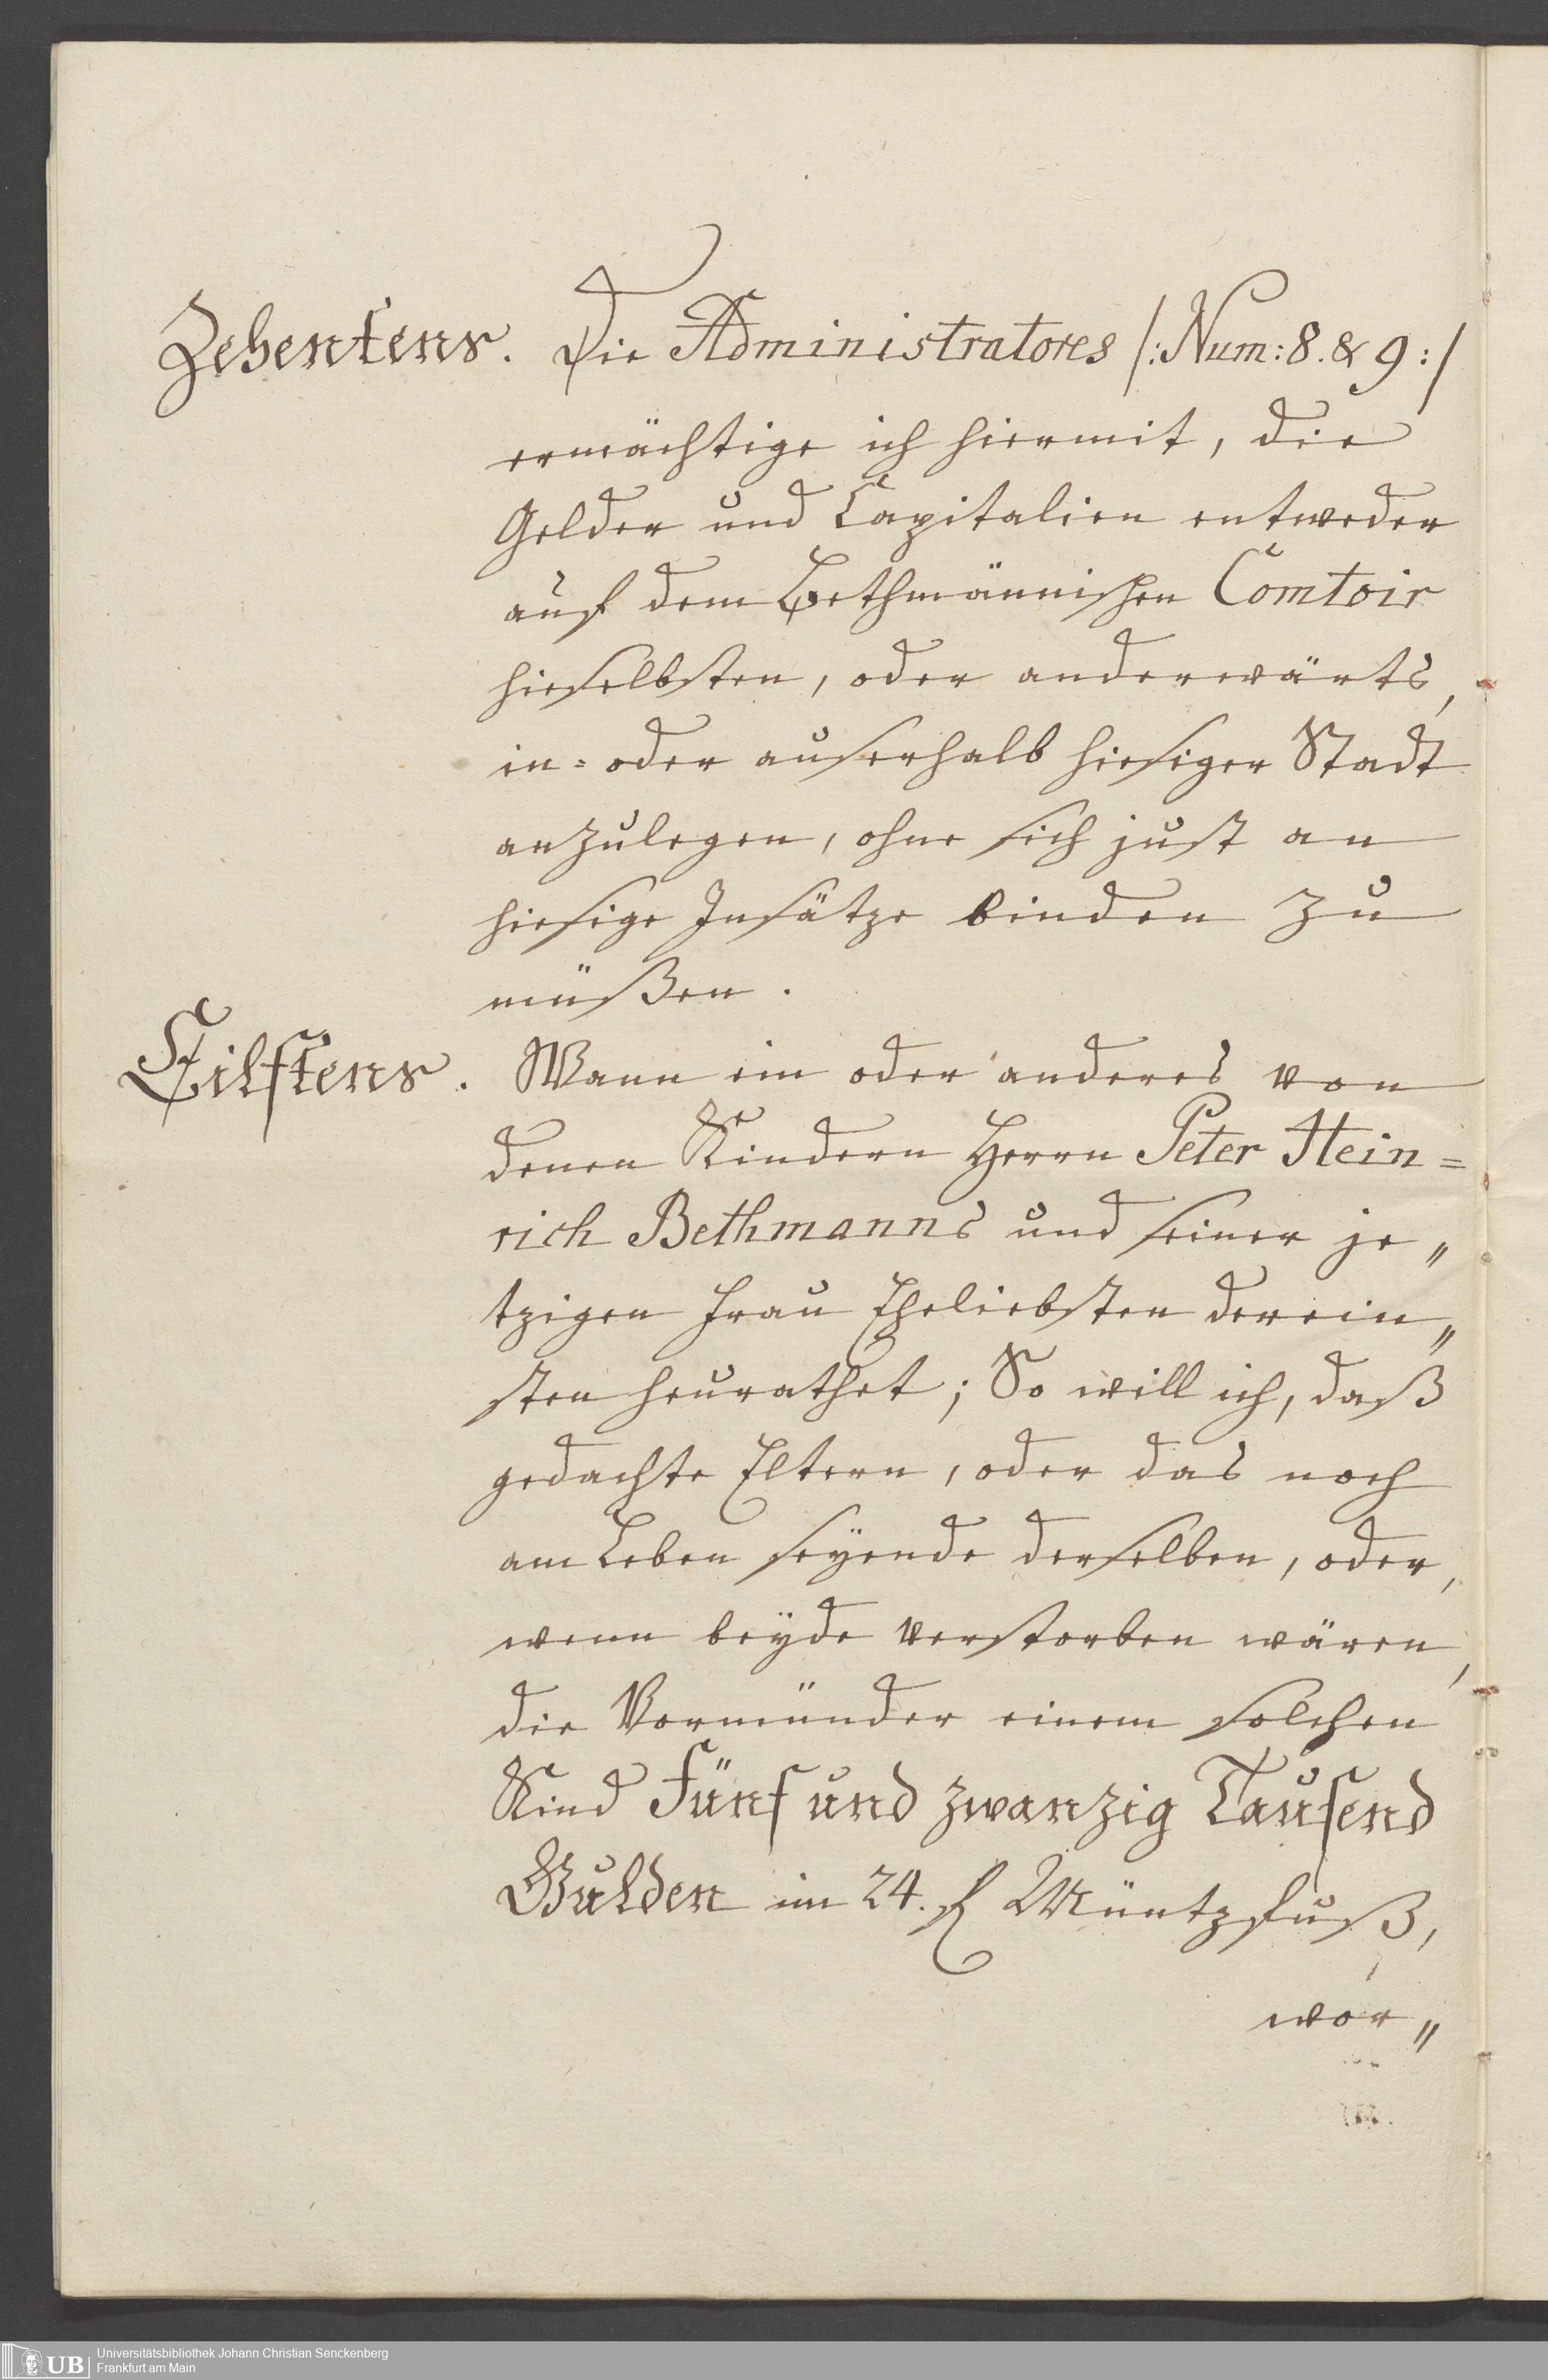 Zehentens. Die Administratores /: Num: 8. & 9 :/
ermächtige ich hiermit, die
Gelder und Capitalien entweder
auf dem Bethmännischen Comtoir
hieselbsten, oder anderwärts,
in= oder auserhalb hiesiger Stadt
anzulegen, ohne sich just an
hiesige Insätze binden zu
müßen.
Eilftens. Wann ein oder anderes von
denen Kindern Herrn Peter Hein=
rich Bethmanns und seiner je„
tzigen Frau Eheliebsten derein„
sten heurathet; So will ich, daß
gedachte Eltern, oder das noch
am Leben seÿende derselben, oder,
wenn beÿde verstorben wären,
die Vormünder einem solchen
Kind Fünf und zwanzig Tausend
Gulden im 24. f Müntzfuß,
wor„
UB Universitätsbibliothek Johann Christian Senckenberg
Frankfurt am Main